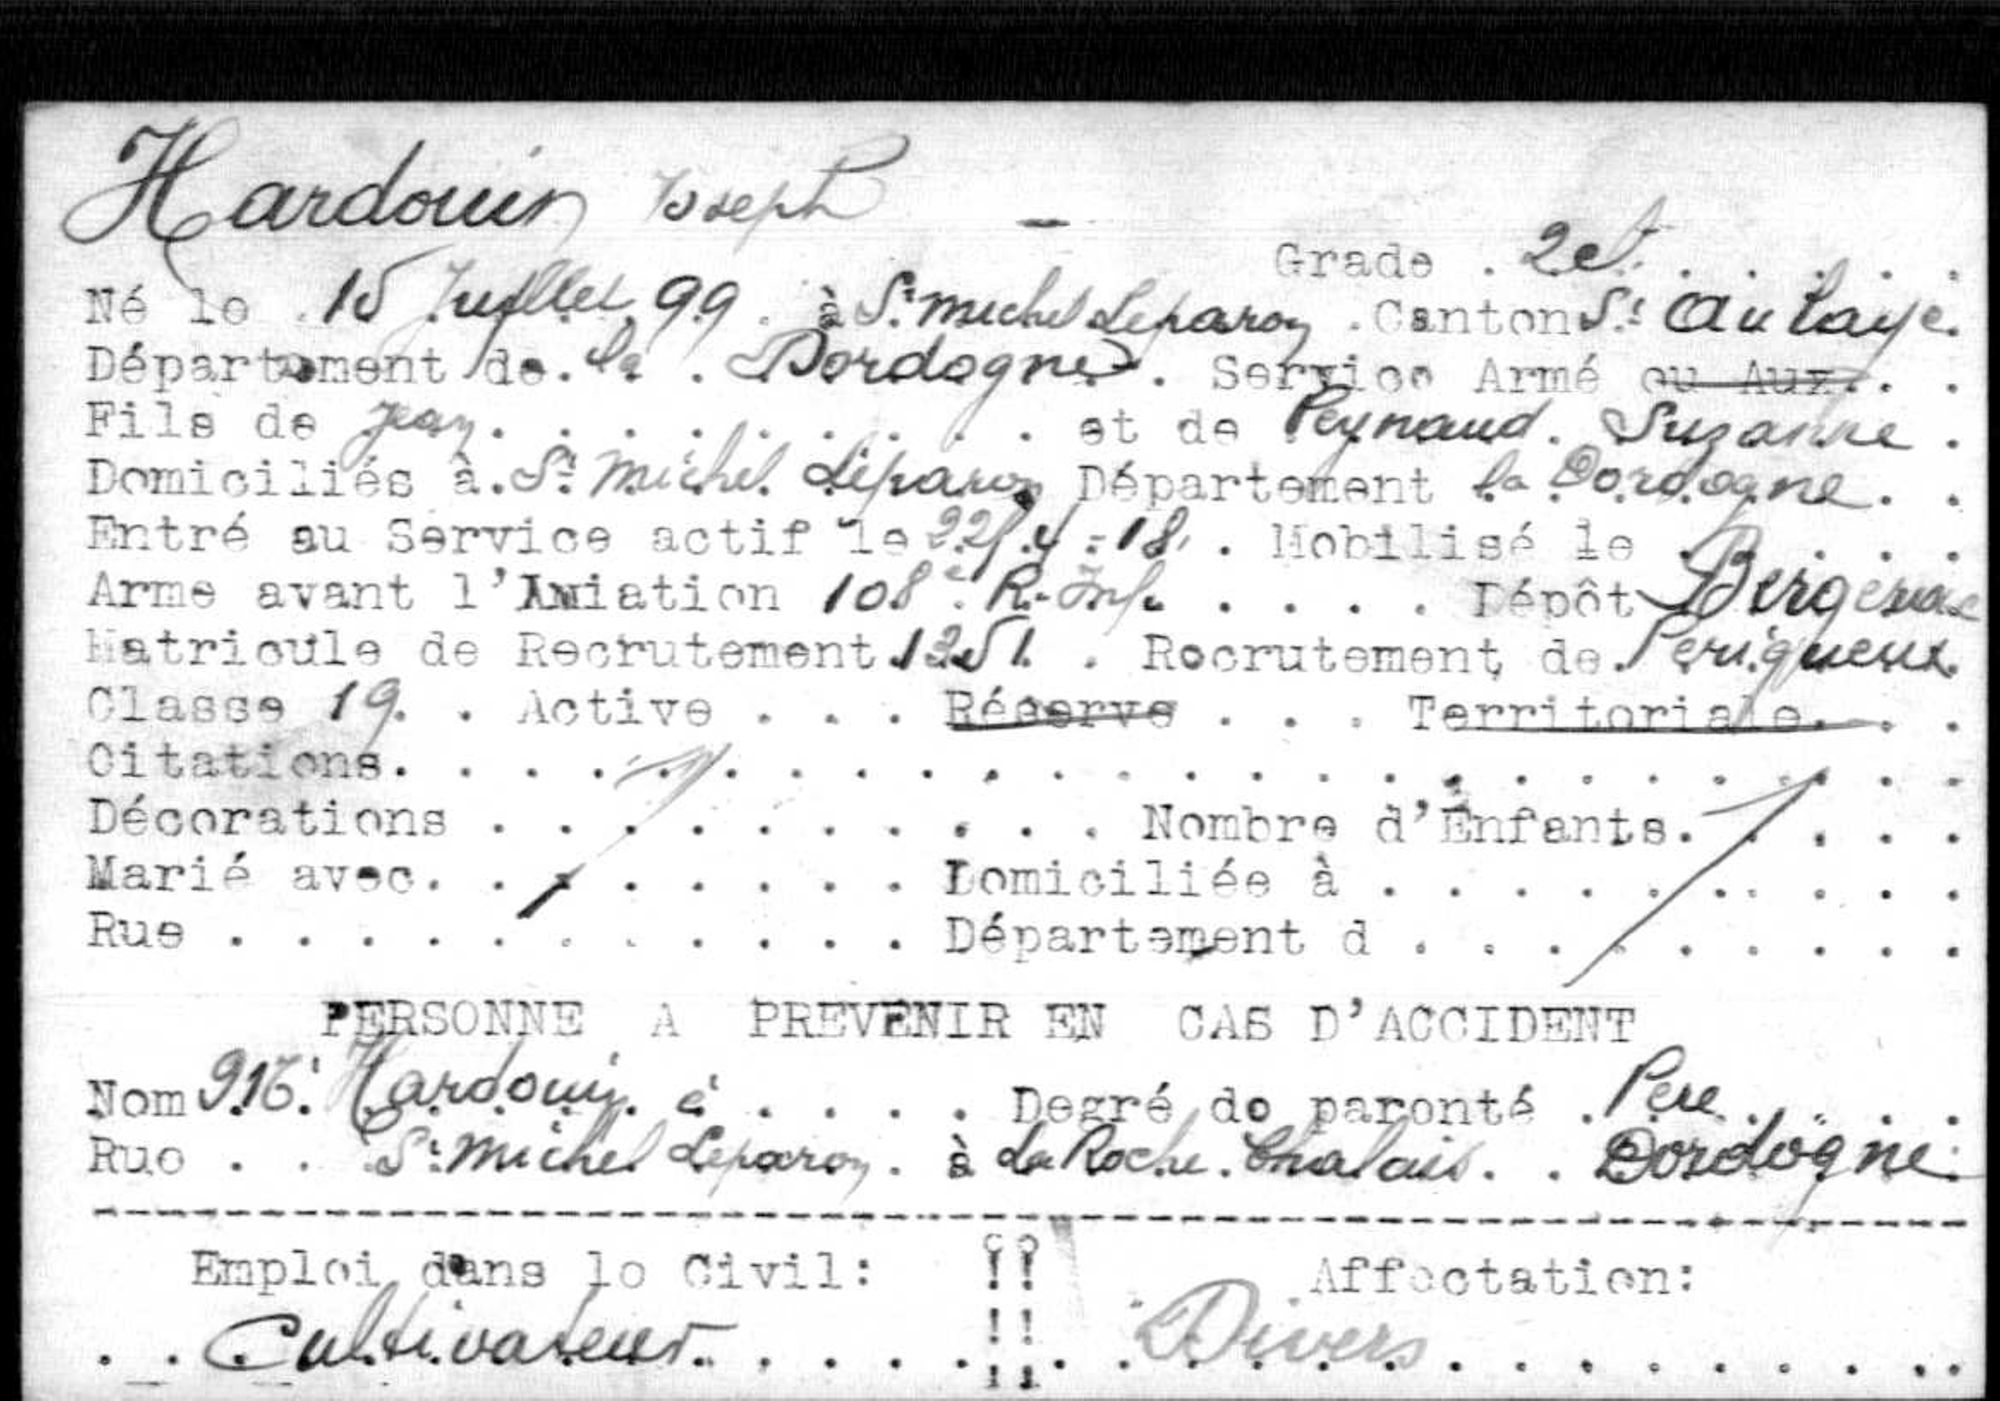 Hardouin Joseph -
Grade . 2e
Né le 15 Juillet 99 . à St Michel Leparon . Canton St Aulaye.
Département de. la . Dordogne . Service Armé ou Aux. . .
Fils de Jean. . . . . . . . . et de Peynaud. Suzanne .
Domiciliés à. St Michel Léparon Département la Dordogne. .
Entré au Service actif le 22/4-18. . Mobilisé le . . . . .
Arme avant l'Aviation 108e R. Inf. . . . . Dépôt Bergerac
Matricule de Recrutement 1251. . Recrutement de. Perigueux.
Classe 19. . Active . . . Réserve . . . Territoriale. . .
Citations. . . . . . . . . . . . . . . . . . . . . . . .
Décorations . . . . . . . . . . Nombre d'Enfants. . . . .
Marié avec. . . . . . . . . Domiciliée à . . . . . . . . .
Rue . . . . . . . . . . . Département d . . . . . . . . .
PERSONNE A PREVENIR EN CAS D'ACCIDENT
Nom Hardouin . . . . Degré de parenté . Père . . . .
Rue . . St Michel Leparon . à La Roche Chalais. . Dordogne
Emploi dans le Civil: !! Affectation:
. . Cultivateur. . . . . !! . . . Divers . . . . . . . .